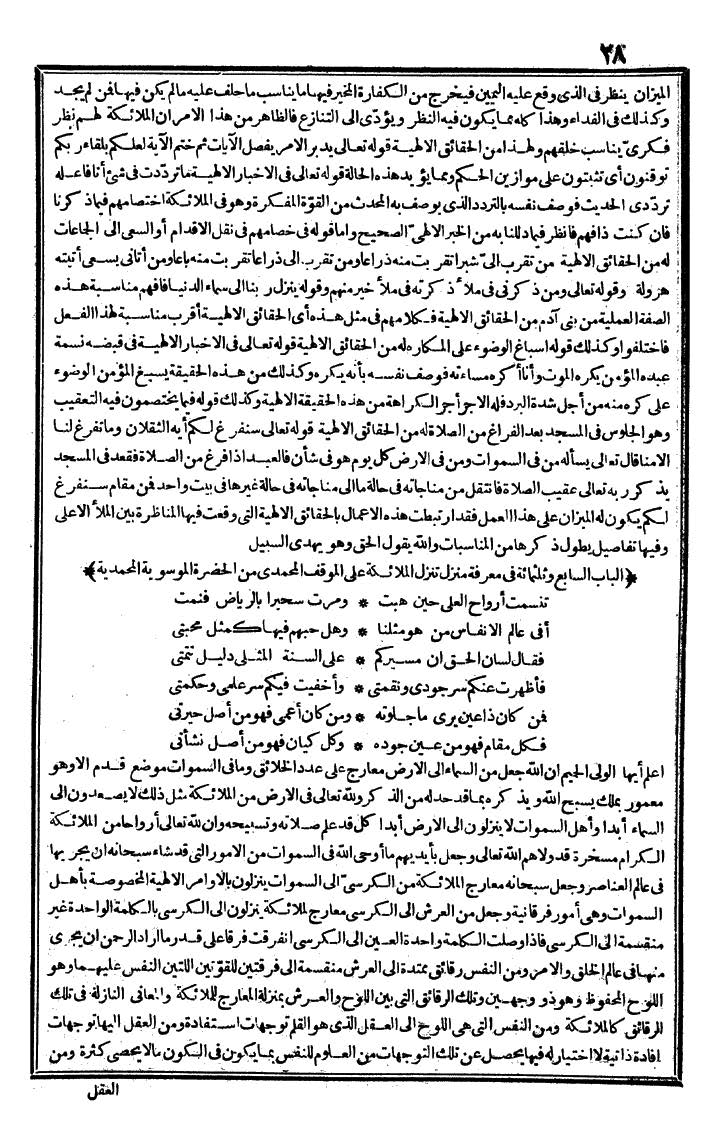 ٢٨
الميزان ينظر فى الذى وقع عليه اليمين فيخرج من الكفارة المخير فيها ما يناسب ما حلف عليه مالم يكن فيها فمن لم يجد
وكذلك فى الفداء وهذا كله مما يكون فيه النظر ويؤدّى الى التنازع فالظاهر من هذا الامر ان الملائكة لهم نظر
فكرىّ يناسب خلقهم ولهذا من الحقائق الالهية قوله تعالى يدبر الامر يفصل الآيات ثم ختم الآية لعلكم بلقاء ربكم
توقنون أى تثبتون على موازين الحكم ومما يؤيد هذه الحالة قوله تعالى فى الاخبار الالهية ما تردّدت فى شئ أنا فاعله
تردّدى الحديث فوصف نفسه بالتردد الذى يوصف به المحدث من القوّة المفكرة وهو فى الملائكة اختصامهم فيما ذكرنا
فان كنت ذا فهم فانظر فيما دللنا به من الخبر الالهىّ الصحيح واما قوله فى خصامهم فى نقل الاقدام أو السعى الى الجاعات
له من الحقائق الالهية من تقرب الىّ شبرا تقربت منه ذراعا ومن تقرب الى ذراعا تقربت منه باعا ومن أتانى يسعى أتيته
هرولة وقوله تعالى ومن ذكرنى فى ملأ ذكرته فى ملأ خير منهم وقوله ينزل ربنا الى سماء الدنيا فافهم مناسبة هذه
الصفة العملية من بنى آدم من الحقائق الالهية فكلامهم فى مثل هذه أى الحقائق الالهية أقرب مناسبة لهذا الفعل
فاختلفوا وكذلك قوله اسباغ الوضوء على المكاره له من الحقائق الالهية قوله تعالى فى الاخبار الالهية فى قبضه نسمة
عبده المؤمن يكره الموت وأنا أكره مساءته فوصف نفسه بأنه يكره وكذلك من هذه الحقيقة يسبغ المؤمن الوضوء
على كره منه من أجل شدة البرد فله الاجر أجر الكراهة من هذه الحقيقة الالهية وكذلك قوله فيما يختصمون فيه التعقيب
وهو الجلوس فى المسجد بعد الفراغ من الصلاة له من الحقائق الالهية قوله تعالى سنفرغ لكم أيه الثقلان وما تفرغ لنا
الامنا قال تعالى يسأله من فى السموات ومن فى الارض كل يوم هو فى شأن فالعبد اذا فرغ من الصلاة فقعد فى المسجد
يذكر ربه تعالى عقيب الصلاة فانتقل من مناجاته فى حالة ما الى مناجاته فى حالة غيرها فى بيت واحد فمن مقام سنفرغ
لكم يكون له الميزان على هذا العمل فقد ارتبطت هذه الاعمال بالحقائق الالهية التى وقعت فيها المناظرة بين الملأ الاعلى
وفيها تفاصيل يطول ذكرها من المناسبات والله يقول الحق وهو يهدى السبيل
﴿الباب السابع وثلثمائة فى معرفة منزل تنزل الملائكة على الموقف المحمدى من الحضرة الموسوية المحمدية﴾
تنسمت أرواح العلى حين هبت * ومرت سحيرا بالرياض فنمت
أفى عالم الانفاس من هو مثلنا * وهل حبهم فيها كمثل محبتى
فقال لسان الحق ان مسيركم * على السنة المثلى دليل تمتى
فأظهرت عنكم سر جودى ونقمتى * وأخفيت فيكم سر علمى وحكمتى
فمن كان ذا عين يرى ما جلوته * ومن كان أعمى فهو من أصل حيرتى
فكل مقام فهو من عين جوده * وكل كيان فهو من أصل نشأتى
اعلم أيها الولى الحميم ان الله جعل من السماء الى الارض معارج على عدد الخلائق وما فى السموات موضع قدم الا وهو
معمور بملك يسبح الله ويذكره بما قد حد له من الذكر ولله تعالى فى الارض من الملائكة مثل ذلك لا يصعدون الى
السماء أبدا وأهل السموات لا ينزلون الى الارض أبدا كل قد علم صلاته وتسبيحه وان لله تعالى أرواحا من الملائكة
الكرام مسخرة قد ولاهم الله تعالى وجعل بأيديهم ما أوحى الله فى السموات من الامور التى قد شاء سبحانه ان يجريها
فى عالم العناصر وجعل سبحانه معارج الملائكة من الكرسىّ الى السموات ينزلون بالاوامر الالهية المخصوصة بأهل
السموات وهى أمور فرقانية وجعل من العرش الى الكرسى معارج لملائكة ينزلون الى الكرسى بالكلمة الواحدة غير
منقسمة الى الكرسى فاذا وصلت الكلمة واحدة العين الى الكرسى انفرقت فرقا على قدر ما اراد الرحمن ان يجرى
منها فى عالم الخلق والامر ومن النفس رقائق ممتدة الى العرش منقسمة الى فرقتين للقوّتين اللتين النفس عليهما وهو
اللوح المحفوظ وهو ذو وجهين وتلك الرقائق التى بين اللوح والعرش بمنزلة المعارج للملائكة والمعانى النازلة فى تلك
الرقائق كالملائكة ومن النفس التى هى اللوح الى العقل الذى هو القلم توجهات استفادة ومن العقل اليها توجهات
افادة ذاتية لا اختيار له فيها يحصل عن تلك التوجهات من العلوم للنفس بما يكون فى الكون ما لا يحصى كثرة ومن
العقل